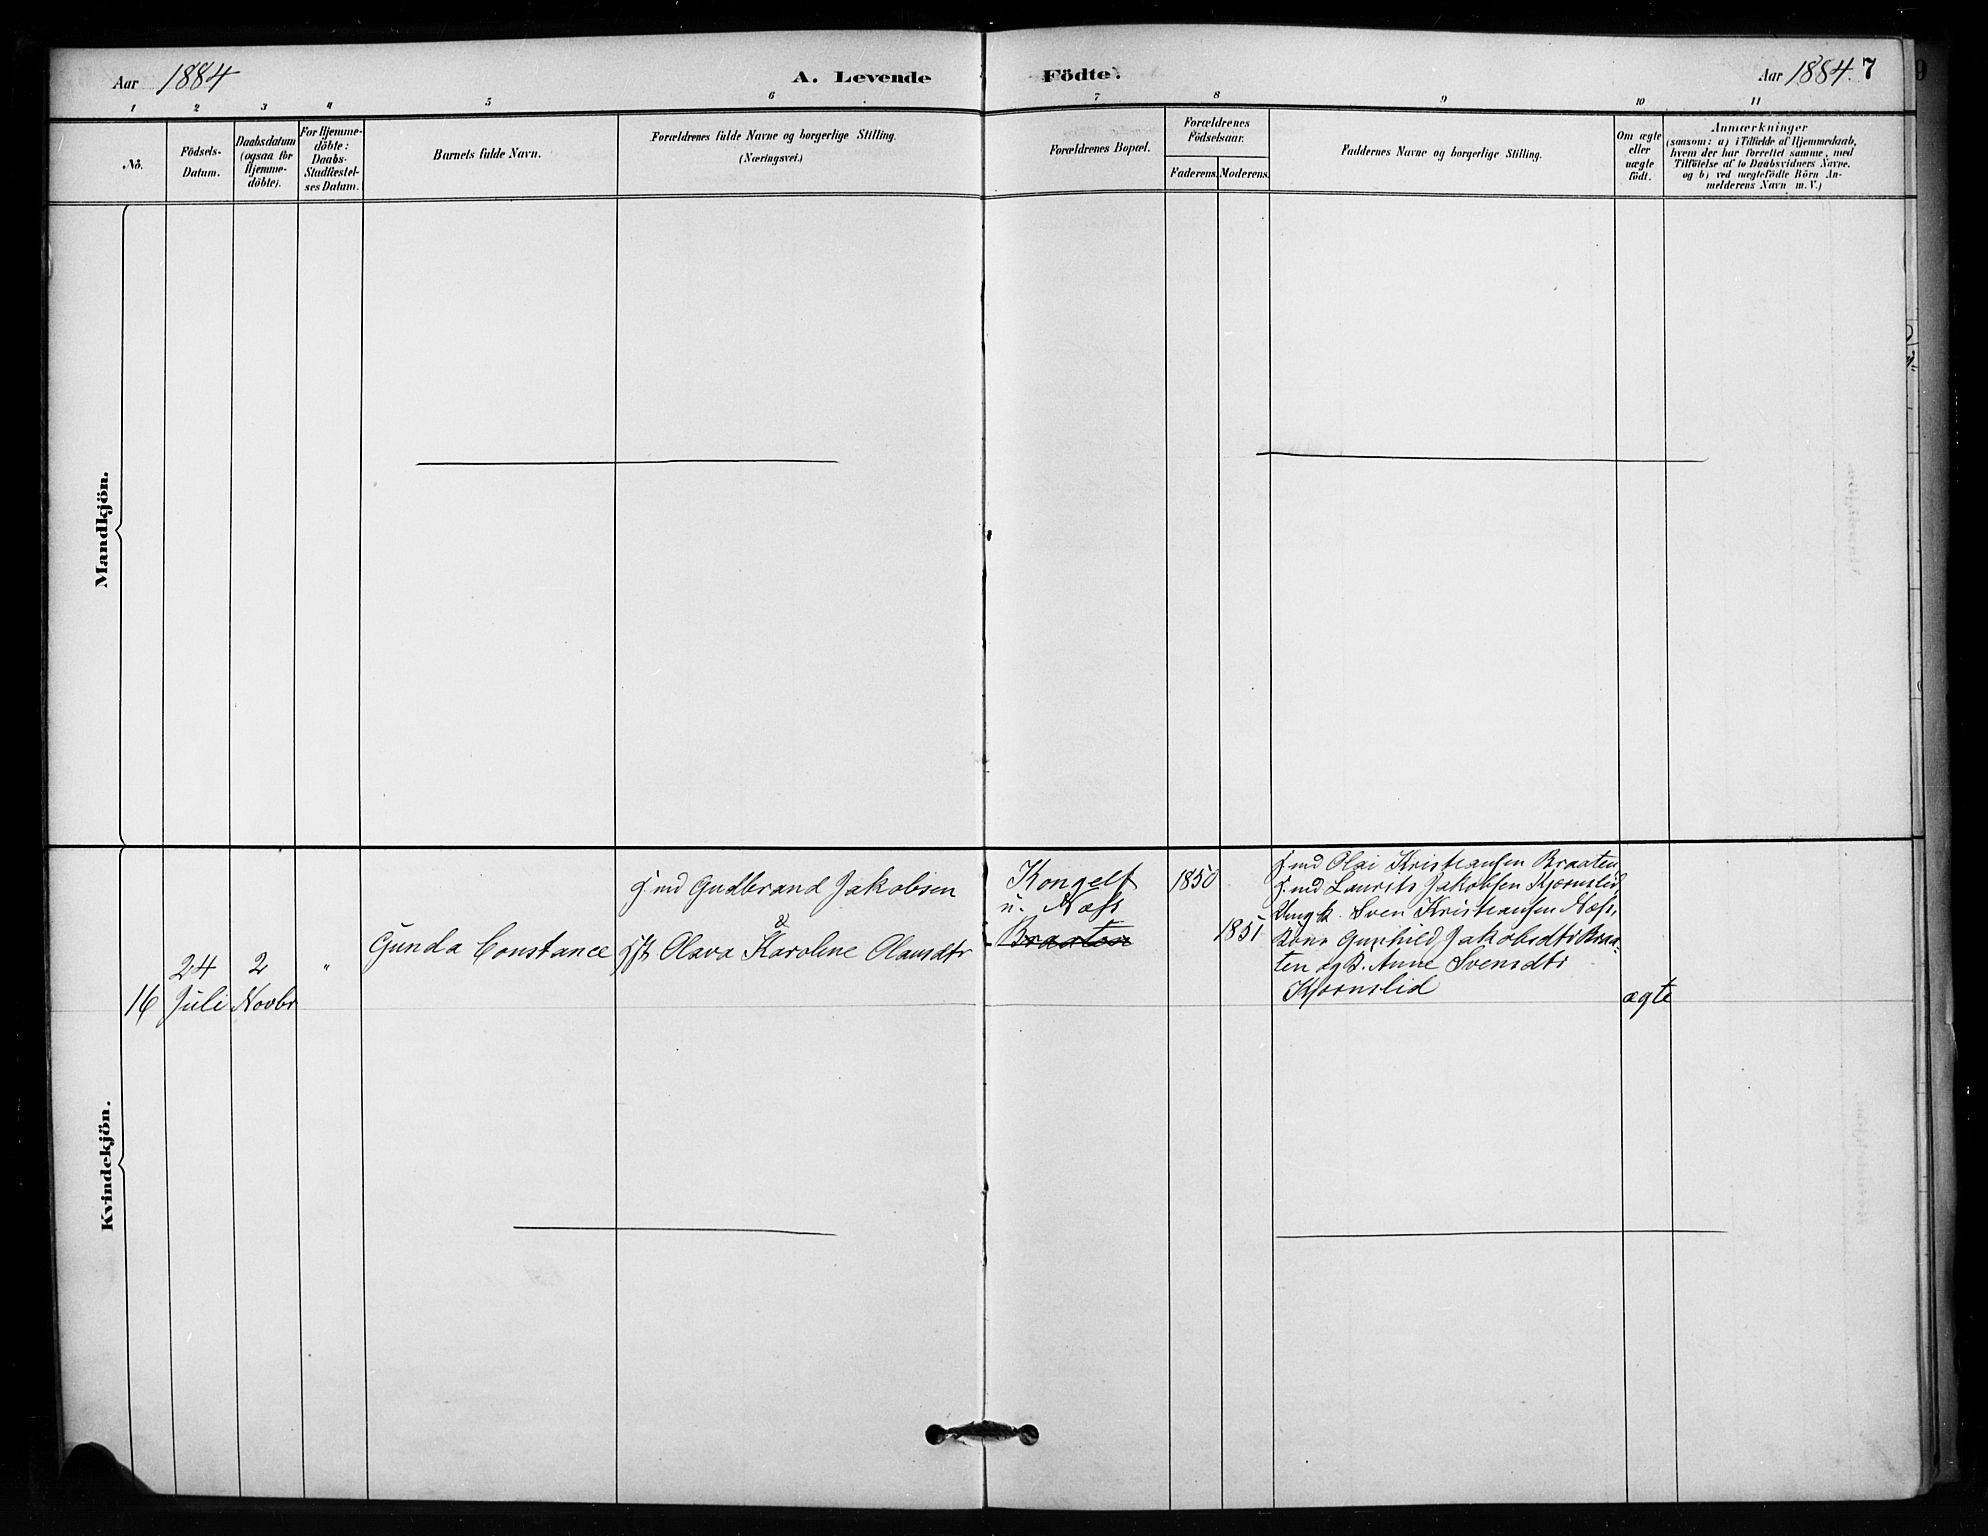 Aar 1884
A. Levende Födte.
Aar 1884. 7
9
1 2 3 4 5 6 7 8 9 10 11
No.
Födsels-
Datum.
Daabsdatum
(ogsaa for
Hjemme-
döbte).
For Hjemme-
döbte:
Daabs-
Stadfæstel-
ses Datum.
Barnets fulde Navn.
Forældrenes fulde Navne og borgerlige Stilling.
(Næringsvei.)
Forældrenes Bopæl.
Forældrenes
Födselsaar.
Faderens. Moderens.
Faddernes Navne og borgerlige Stilling.
Om ægte
eller
uægte
födt.
Anmærkninger
(saasom: a) i Tilfælde af Hjemmedaab,
hvem der har forrettet samme, med
Tilföielse af to Daabsvidners Navne,
og b) ved uægtefödte Börn An-
melderens Navn m. V.)
Mandkjön.
Kvindekjön.
16
24
Juli
2
Novbr
"
Gunda Constance
Gudbrand Jakobsen
&
Olava Karoline Olausdtr
Kongelf
u. Næss
Braaten
1850
1851
Olai Kristiansen Braaten,
Laurits Jakobsen Kjørnslid,
Ungk. Sven Kristiansen Næss,
Kone Gunhild Jakobsdtr Braa-
ten og K. Anne Svensdtr
Kjørnslid
ægte